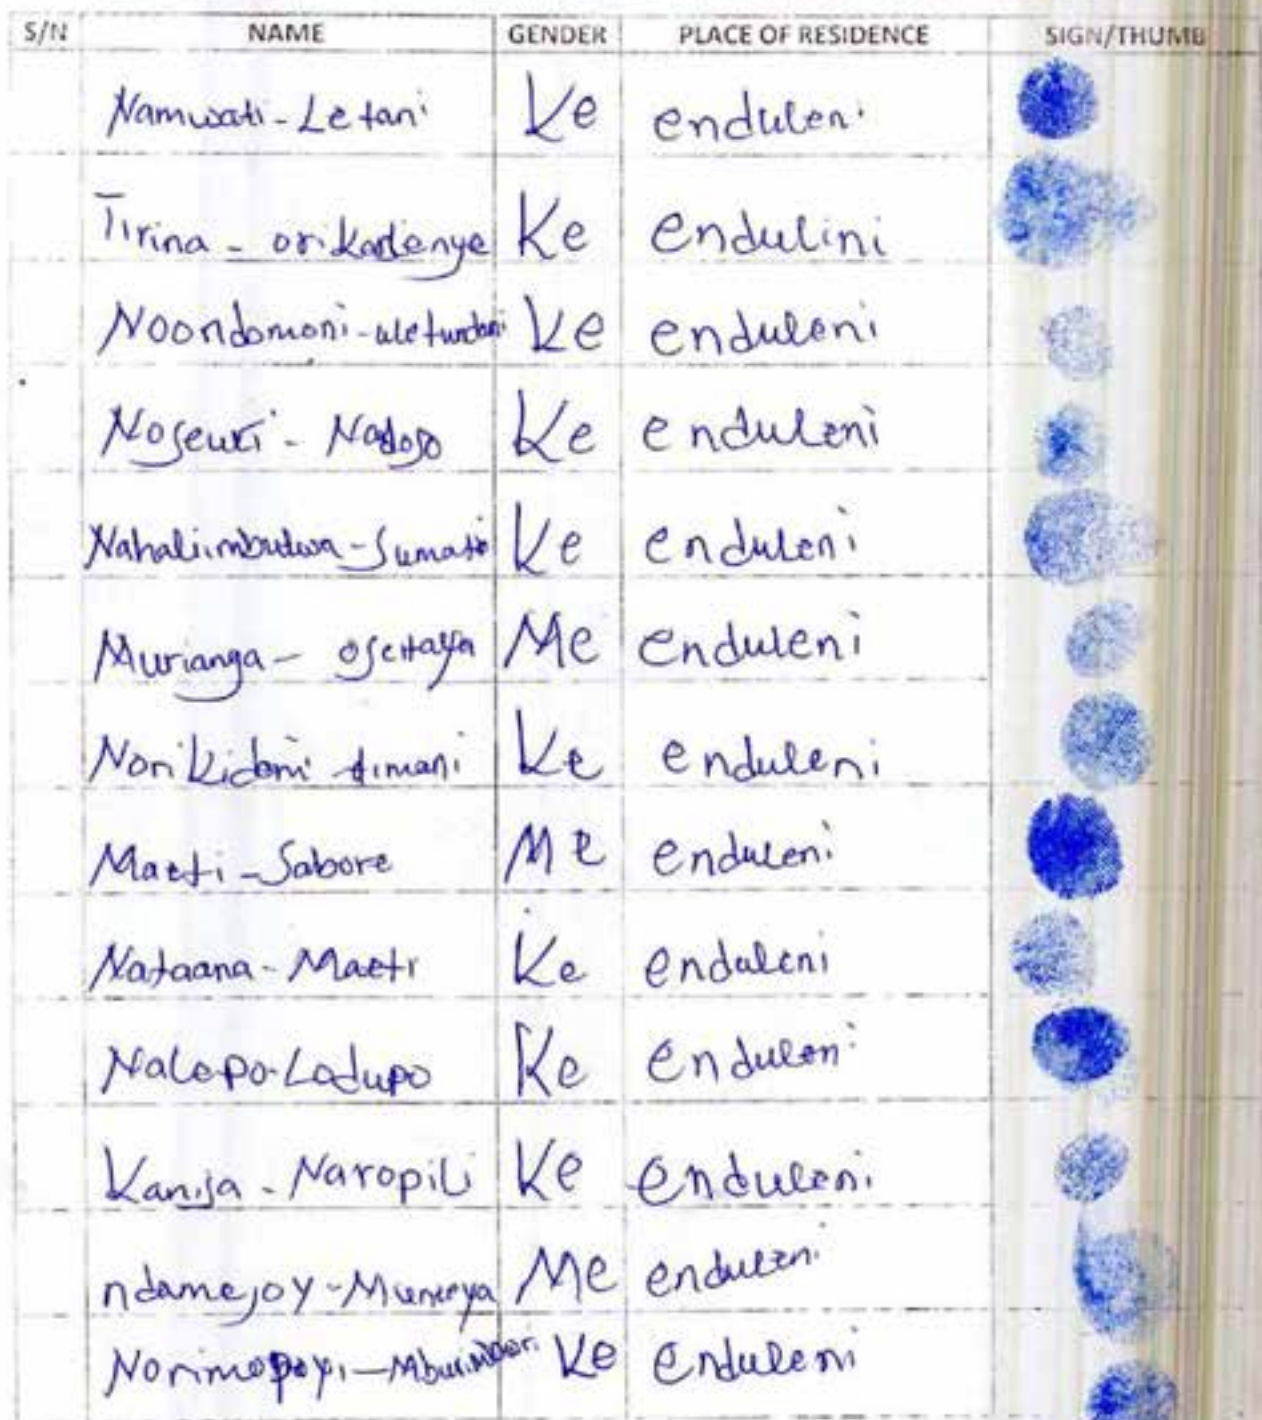 S/N NAME GENDER PLACE OF RESIDENCE SIGN/THUMB
Namwati-Letani Ke enduleni
Tirina - orikadenye Ke endulini
Noondomoni- Ke enduleni
Noseuri - Nadoso Ke enduleni
Ke enduleni
Murianga - Me enduleni
Norikidoni timani Ke enduleni
Maeti-Sabore Me enduleni
Nataana-Maeti Ke enduleni
Nalepo-Ladupo Ke enduleni
Kanija-Naropili Ke enduleni
ndamejoy-Munerya Me enduleni
Ke enduleni